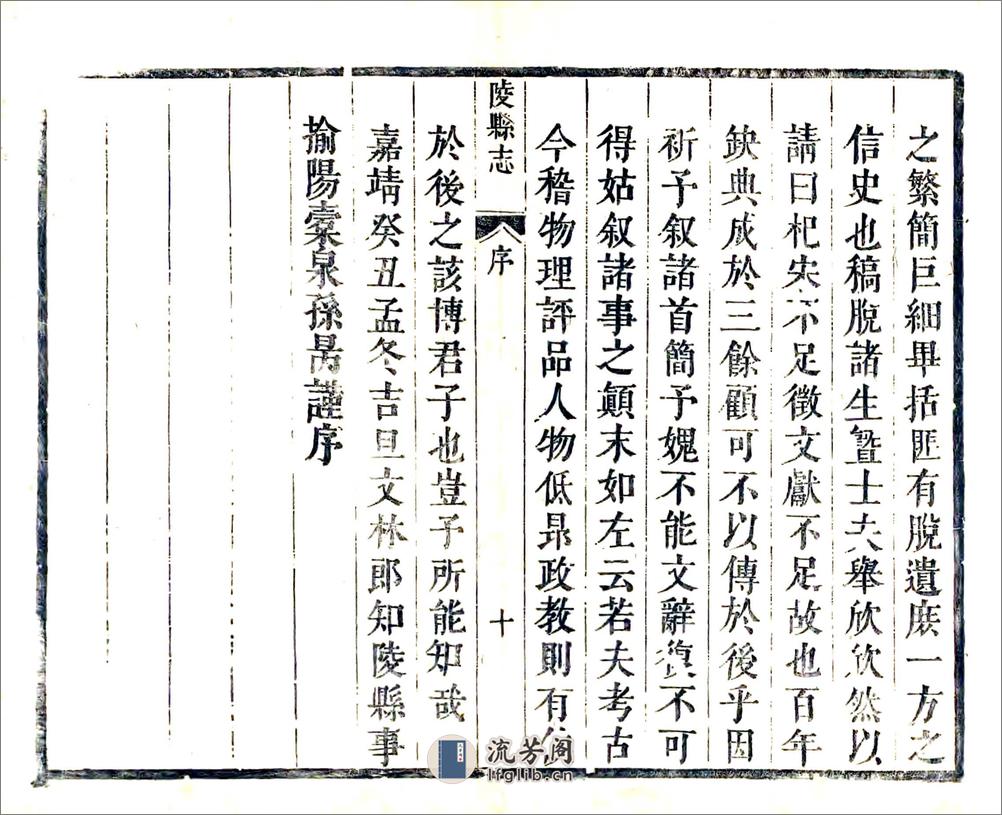 之繁簡巨細畢括匪有脫遺庶一方之
信史也稿脫諸生暨士夫舉欣欣然以
請曰杞宋不足徵文獻不足故也百年
缺典成於三餘顧可不以傳於後乎因
祈予叙諸首簡予媿不能文辭復不可
得姑叙諸事之顛末如左云若夫考古
今稽物理評品人物低昻政教則有
陵縣志
序
十
於後之該博君子也豈予所能知哉
嘉靖癸丑孟冬吉旦文林郎知陵縣事
揄陽橐泉孫昺謹序
流芳阁
lfglib.cn